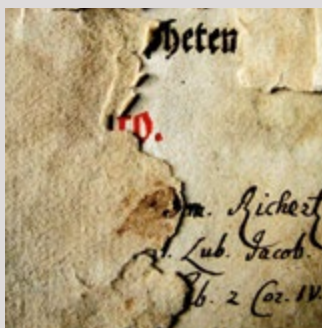 pheten
ro.
Richert
Lub. Jacob.
2 Cor. IV.